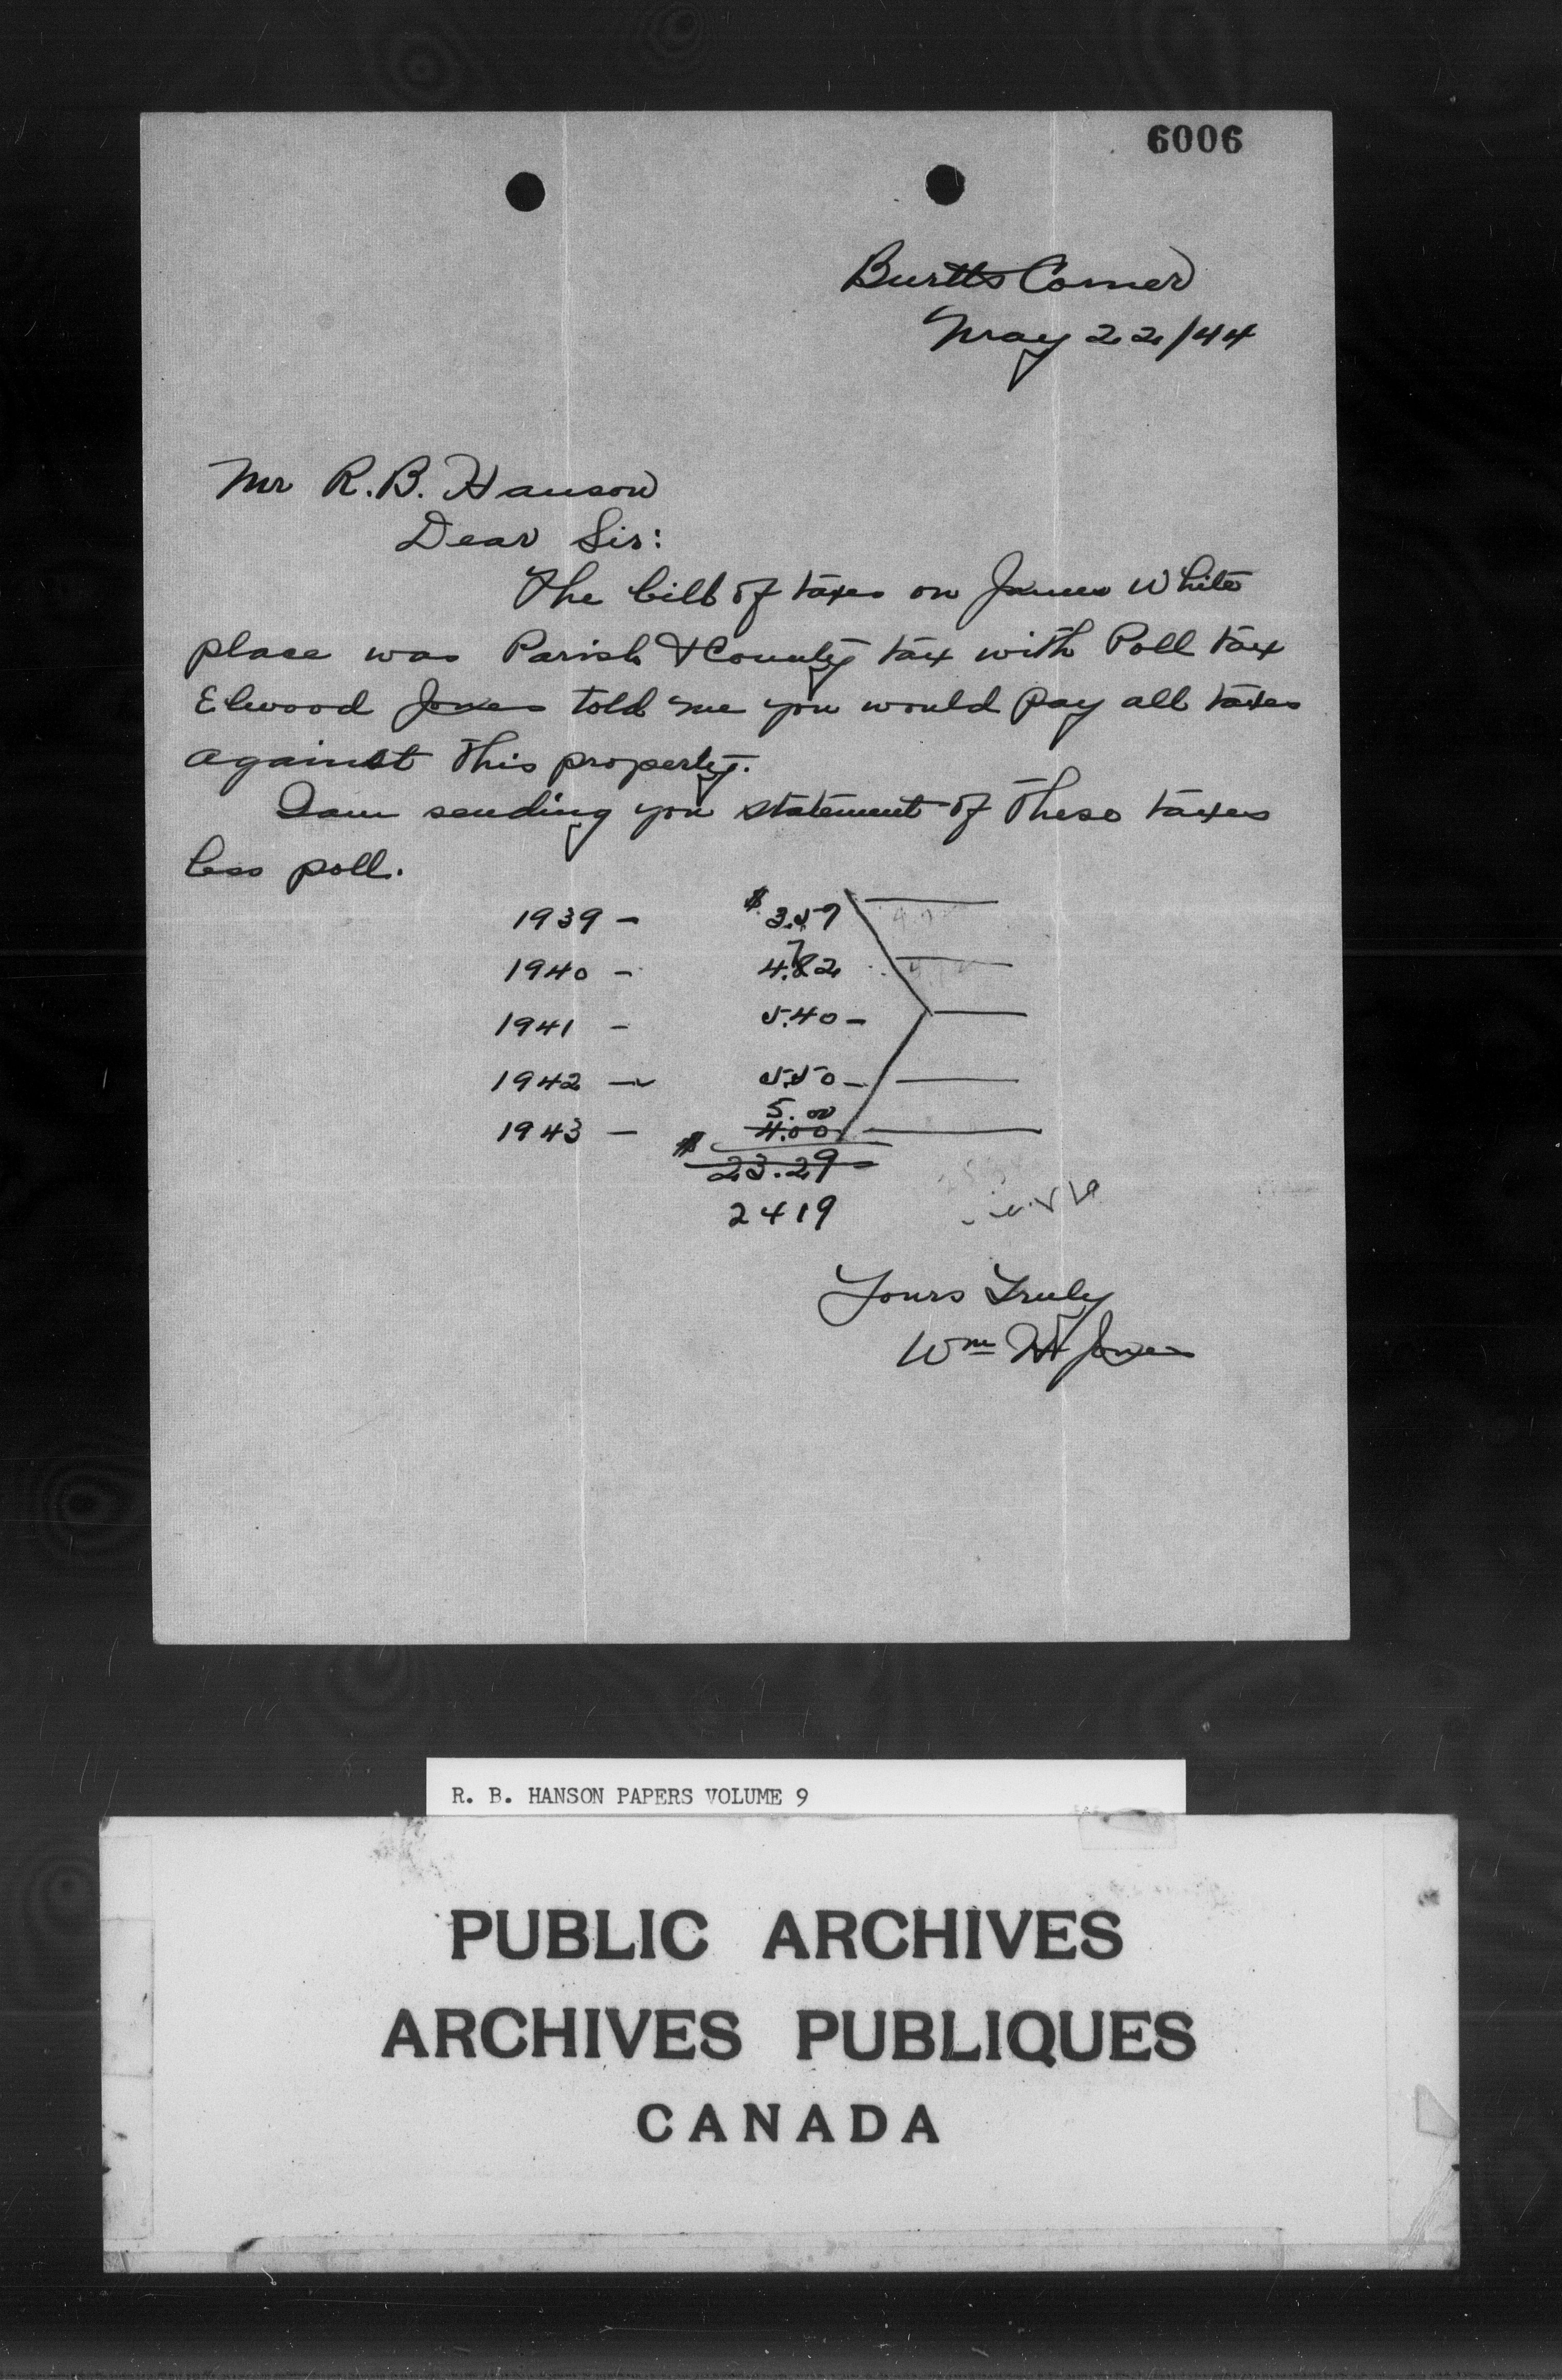 6006
Burtts Corner
May 22/44
Mr R. B. Hanson
Dear Sir:
The bill of taxes on James White
place was Parish & County tax with Poll tax
Elwood Jones told me you would pay all taxes
against this property.
I am sending you statement of these taxes
less poll.
1939 - $3.57
1940 - 4.82
7
1941 - 5.40 -
1942 - 5.50 -
5.00
1943 - 4.00
$ 23.29
2419
Yours Truly
Wm H Jones
R. B. HANSON PAPERS VOLUME 9
PUBLIC ARCHIVES
ARCHIVES PUBLIQUES
CANADA